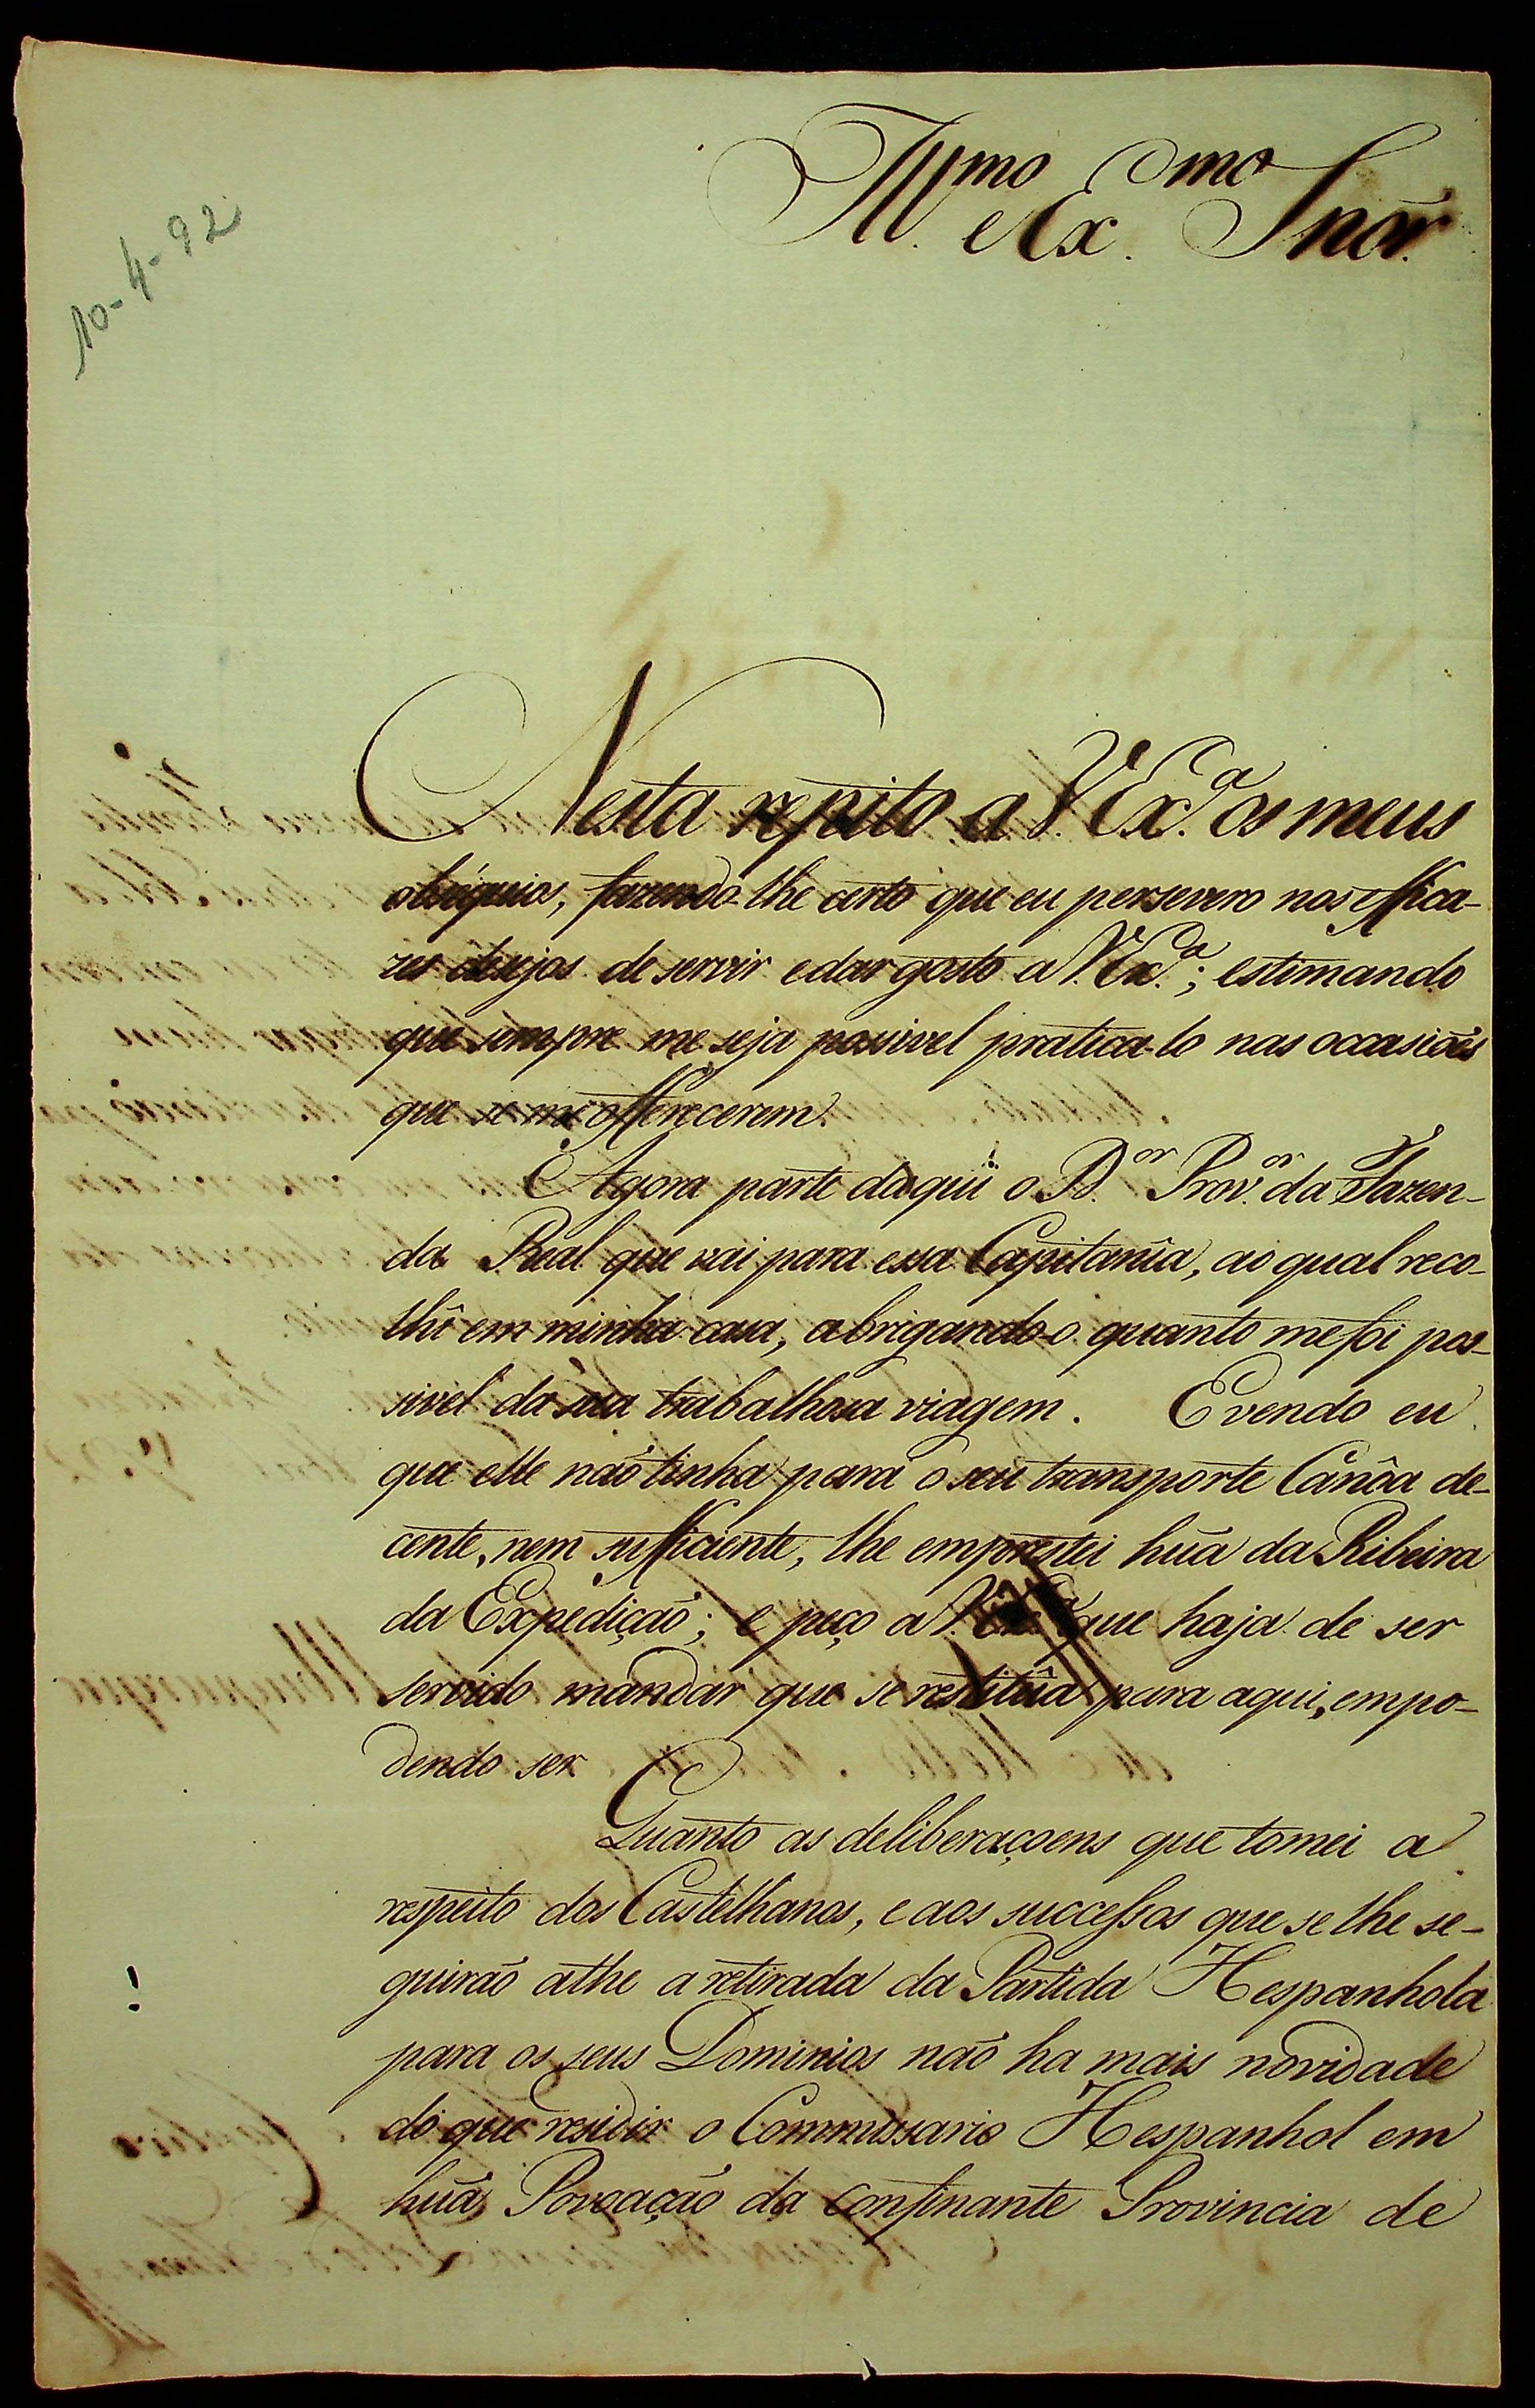 Ill.mo e Ex.mo Snõr.
10-4-92
Nesta repito a V. Ex.a os meus
obsequios, fazendo-lhe certo que eu persevero nos effica-
zes desejos de servir e dar gosto a V. Ex.a; estimando
que sempre me seja possivel pratica-lo nas occasioẽs
que se me offerecerem.
Agora parte daqui o D.or Prov.or da Fazen-
da Real que vai para essa Capitanîa, ao qual reco-
lhî em minha casa, abrigando-o quanto me foi pos-
sivel da sua trabalhosa viagem. E vendo eu
que elle naõ tinha para o seu transporte Canôa de-
cente, nem sufficiente, lhe emprestei huã da Ribeira
da Expediçaõ; e peço a V. que haja de ser
servido mandar que se restitûa para aqui, em po-
dendo ser
Quanto as deliberaçoens que tomei a
respeito dos Castelhanos, e aos successos que se lhe se-
guiraõ athe a retirada da Partida Hespanhola
para os seus Dominios naõ ha mais novidade
do que residir o Commissario Hespanhol em
huã Povoaçaõ da confinante Provincia de